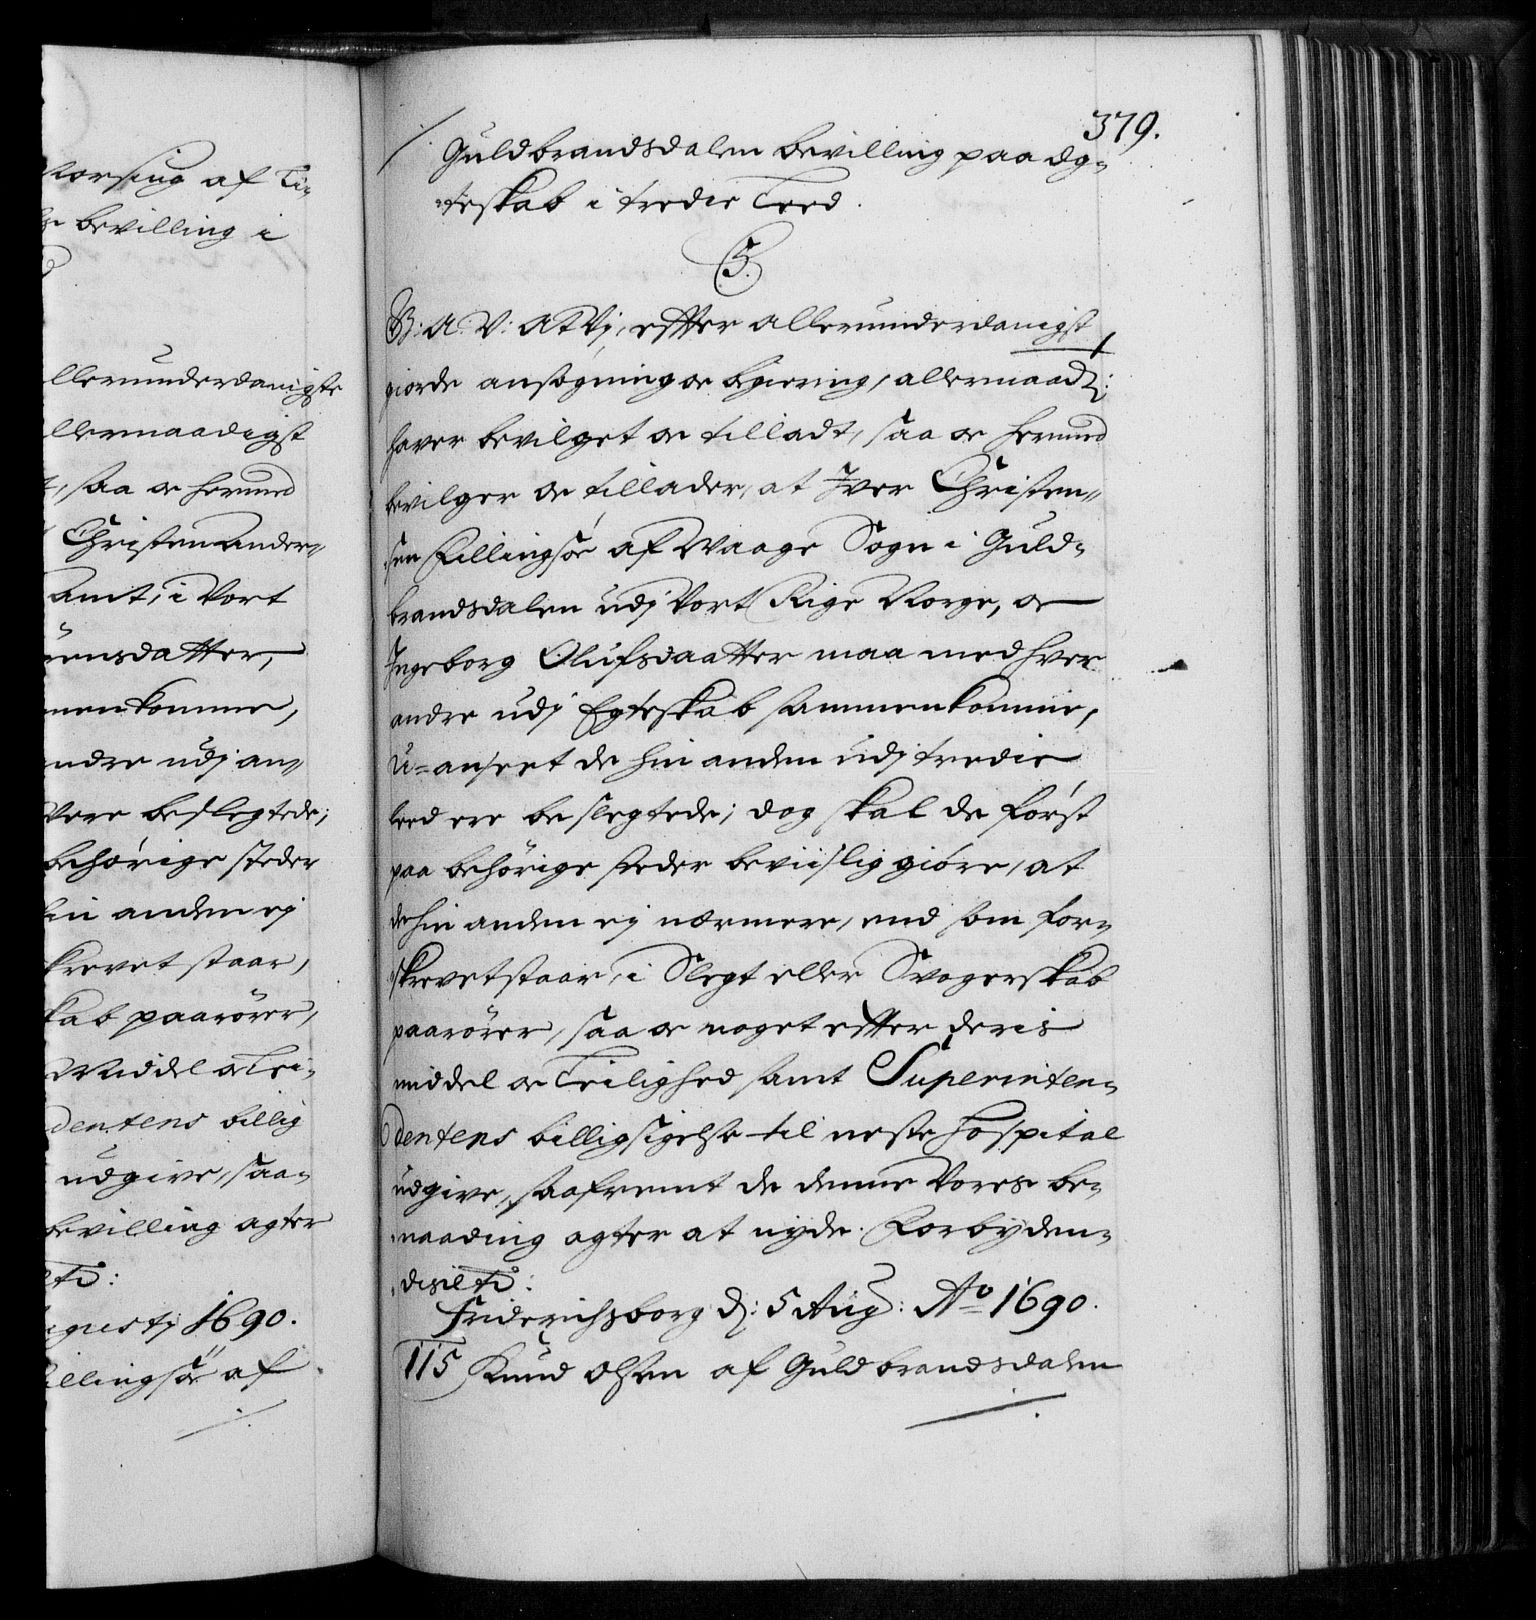 torsing af Ti-
bevilling i
llerunderdanigste
llernaadigst
t, saa oc hermed
Christen Ander-
Amt, i Vort
rensdatter,
menkomme,
ndre udj an-
Vere beslegtede;
behörige steder
hin anden ej
krevet staar,
kab paarörer,
Middel oc Lei-
dentens billig
udgive, saa-
bevilling agter
etc:
igustj 1690.
illingsöe af
379.
Guldbrandsdalen bevilling paa Eg-
teskab i tredie Leed.
C5.
G: A. V: At Vj, effter allerunderdanigst
giorde ansögning oc begiering, allernaadst:
haver bevilget oc tilladt, saa oc hermed
bevilger oc tillader, at Iver Christen-
sen Fillingsöe af Waage Sogn i Guld-
brandsdalen udj Vort Rige Norge, oc
Ingeborg Olufsdaatter maa med hver
andre udj Egteskab sammenkomme,
U-anseet de hin anden udj tredie
leed ere beslegtede; dog skal de först
paa behörige steder beviislig giöre, at
de hin anden ej nærmere, end som for-
skrevet staar, i Slegt eller Svogerskab
paarörer, saa oc noget effter deris
middel oc Leilighed samt Superinten-
dentens billigsigelse til neste Hospital
udgive, saafremt de denne Vores be-
naading agter at nyde. Forbyden-
des etc:
Friderichsborg d: 5 Aug: Ao 1690.
115 Knud Olsen af Guldbrandsdalen